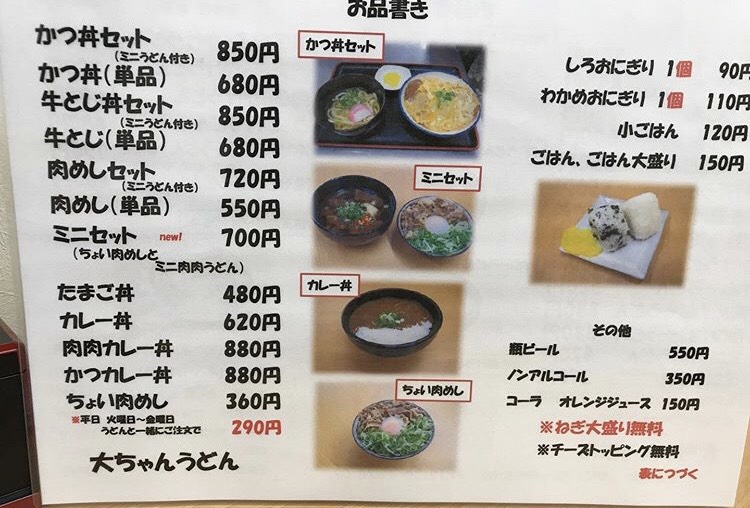 お品書き
かつ丼セット 850円
(ミニうどん付き)
かつ丼(単品) 680円
牛とじ丼セット 850円
(ミニうどん付き)
牛とじ(単品) 680円
肉めしセット 720円
(ミニうどん付き)
肉めし(単品) 550円
ミニセット new! 700円
(ちょい肉めしと
ミニ肉肉うどん)
たまご丼 480円
カレー丼 620円
肉肉カレー丼 880円
かつカレー丼 880円
ちょい肉めし 360円
※平日 火曜日~金曜日
うどんと一緒にご注文で 290円
大ちゃんうどん
かつ丼セット
ミニセット
カレー丼
ちょい肉めし
しろおにぎり 1個 90円
わかめおにぎり 1個 110円
小ごはん 120円
ごはん、ごはん大盛り 150円
その他
瓶ビール 550円
ノンアルコール 350円
コーラ オレンジジュース 150円
※ねぎ大盛り無料
※チーズトッピング無料
表につづく